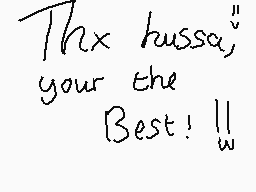 Thx hussa,
your the
Best! !!